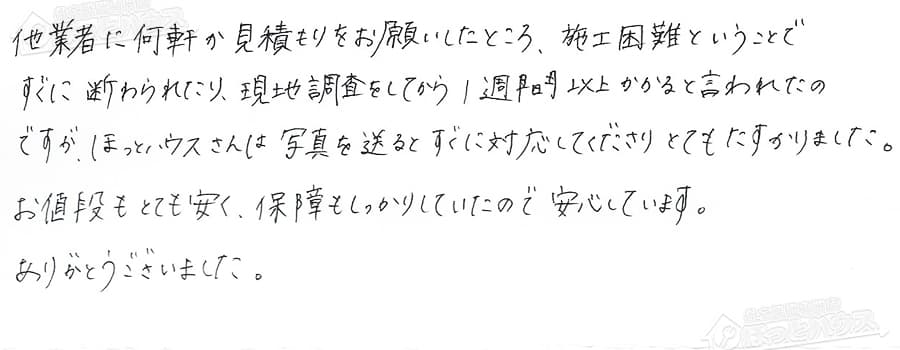 他業者に何軒か見積もりをお願いしたところ、施工困難ということで
すぐに断わられたり、現地調査をしてから1週間以上かかると言われたの
ですが、ほっとハウスさんは写真を送るとすぐに対応してくださりとてもたすかりました。
お値段もとても安く、保障もしっかりしていたので安心しています。
ありがとうございました。
ほっとハウス